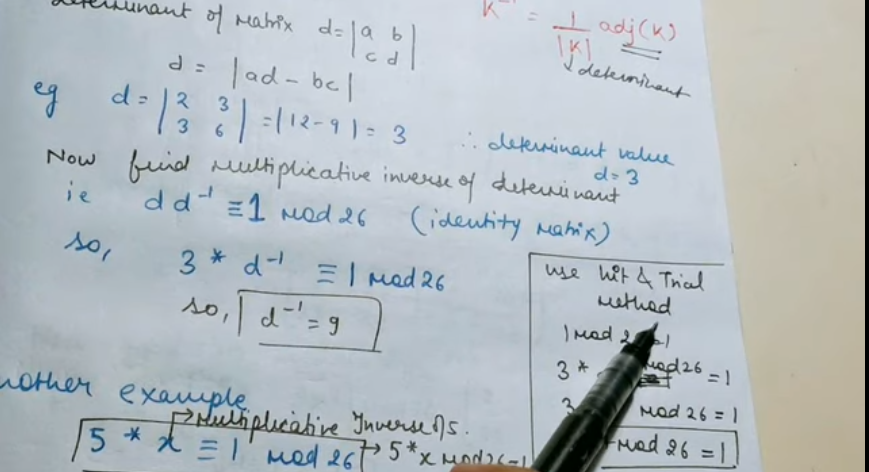 of Matrix d = |a b
c d|
K⁻¹ = 1/|K| adj(K)
↓ determinant
d = |ad - bc|
eg d = |2 3
3 6| = |12-9| = 3 ∴ determinant value
d=3
Now find multiplicative inverse of determinant
ie d d⁻¹ ≡ 1 mod 26 (identity matrix)
so, 3 * d⁻¹ ≡ 1 mod 26
so, d⁻¹ = 9
use hit & Trial
Method
1 mod
3 * mod 26 = 1
3 mod 26 = 1
mod 26 = 1
example
→ Multiplicative Inverse of 5.
5 * x ≡ 1 mod 26 → 5* x mod 26 = 1